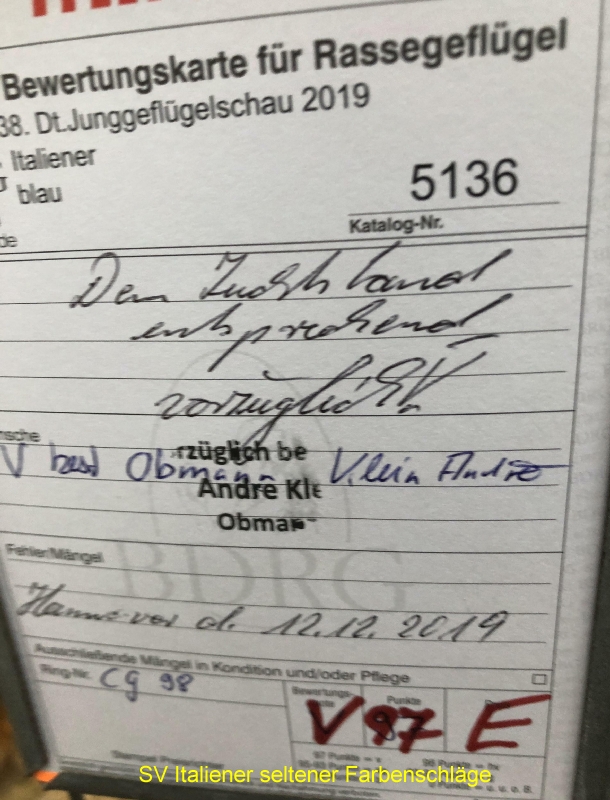 Bewertungskarte für Rassegeflügel
38. Dt.Junggeflügelschau 2019
Italiener
blau
5136
Katalog-Nr.
de
Dem Zuchtstand
entsprechend
vorzüglich SV
nsche
V best Obmann Klein Andre
rzüglich be
André Kle
Obma
BDRG
Fehler/Mängel
Hannover d. 12.12. 2019
Ausschließende Mängel in Kondition und/oder Pflege
Ring-Nr. CG 98
Bewertungs-
note
Punkte
V 97 E
97 Punkte = V
SV Italiener seltener Farbenschläge